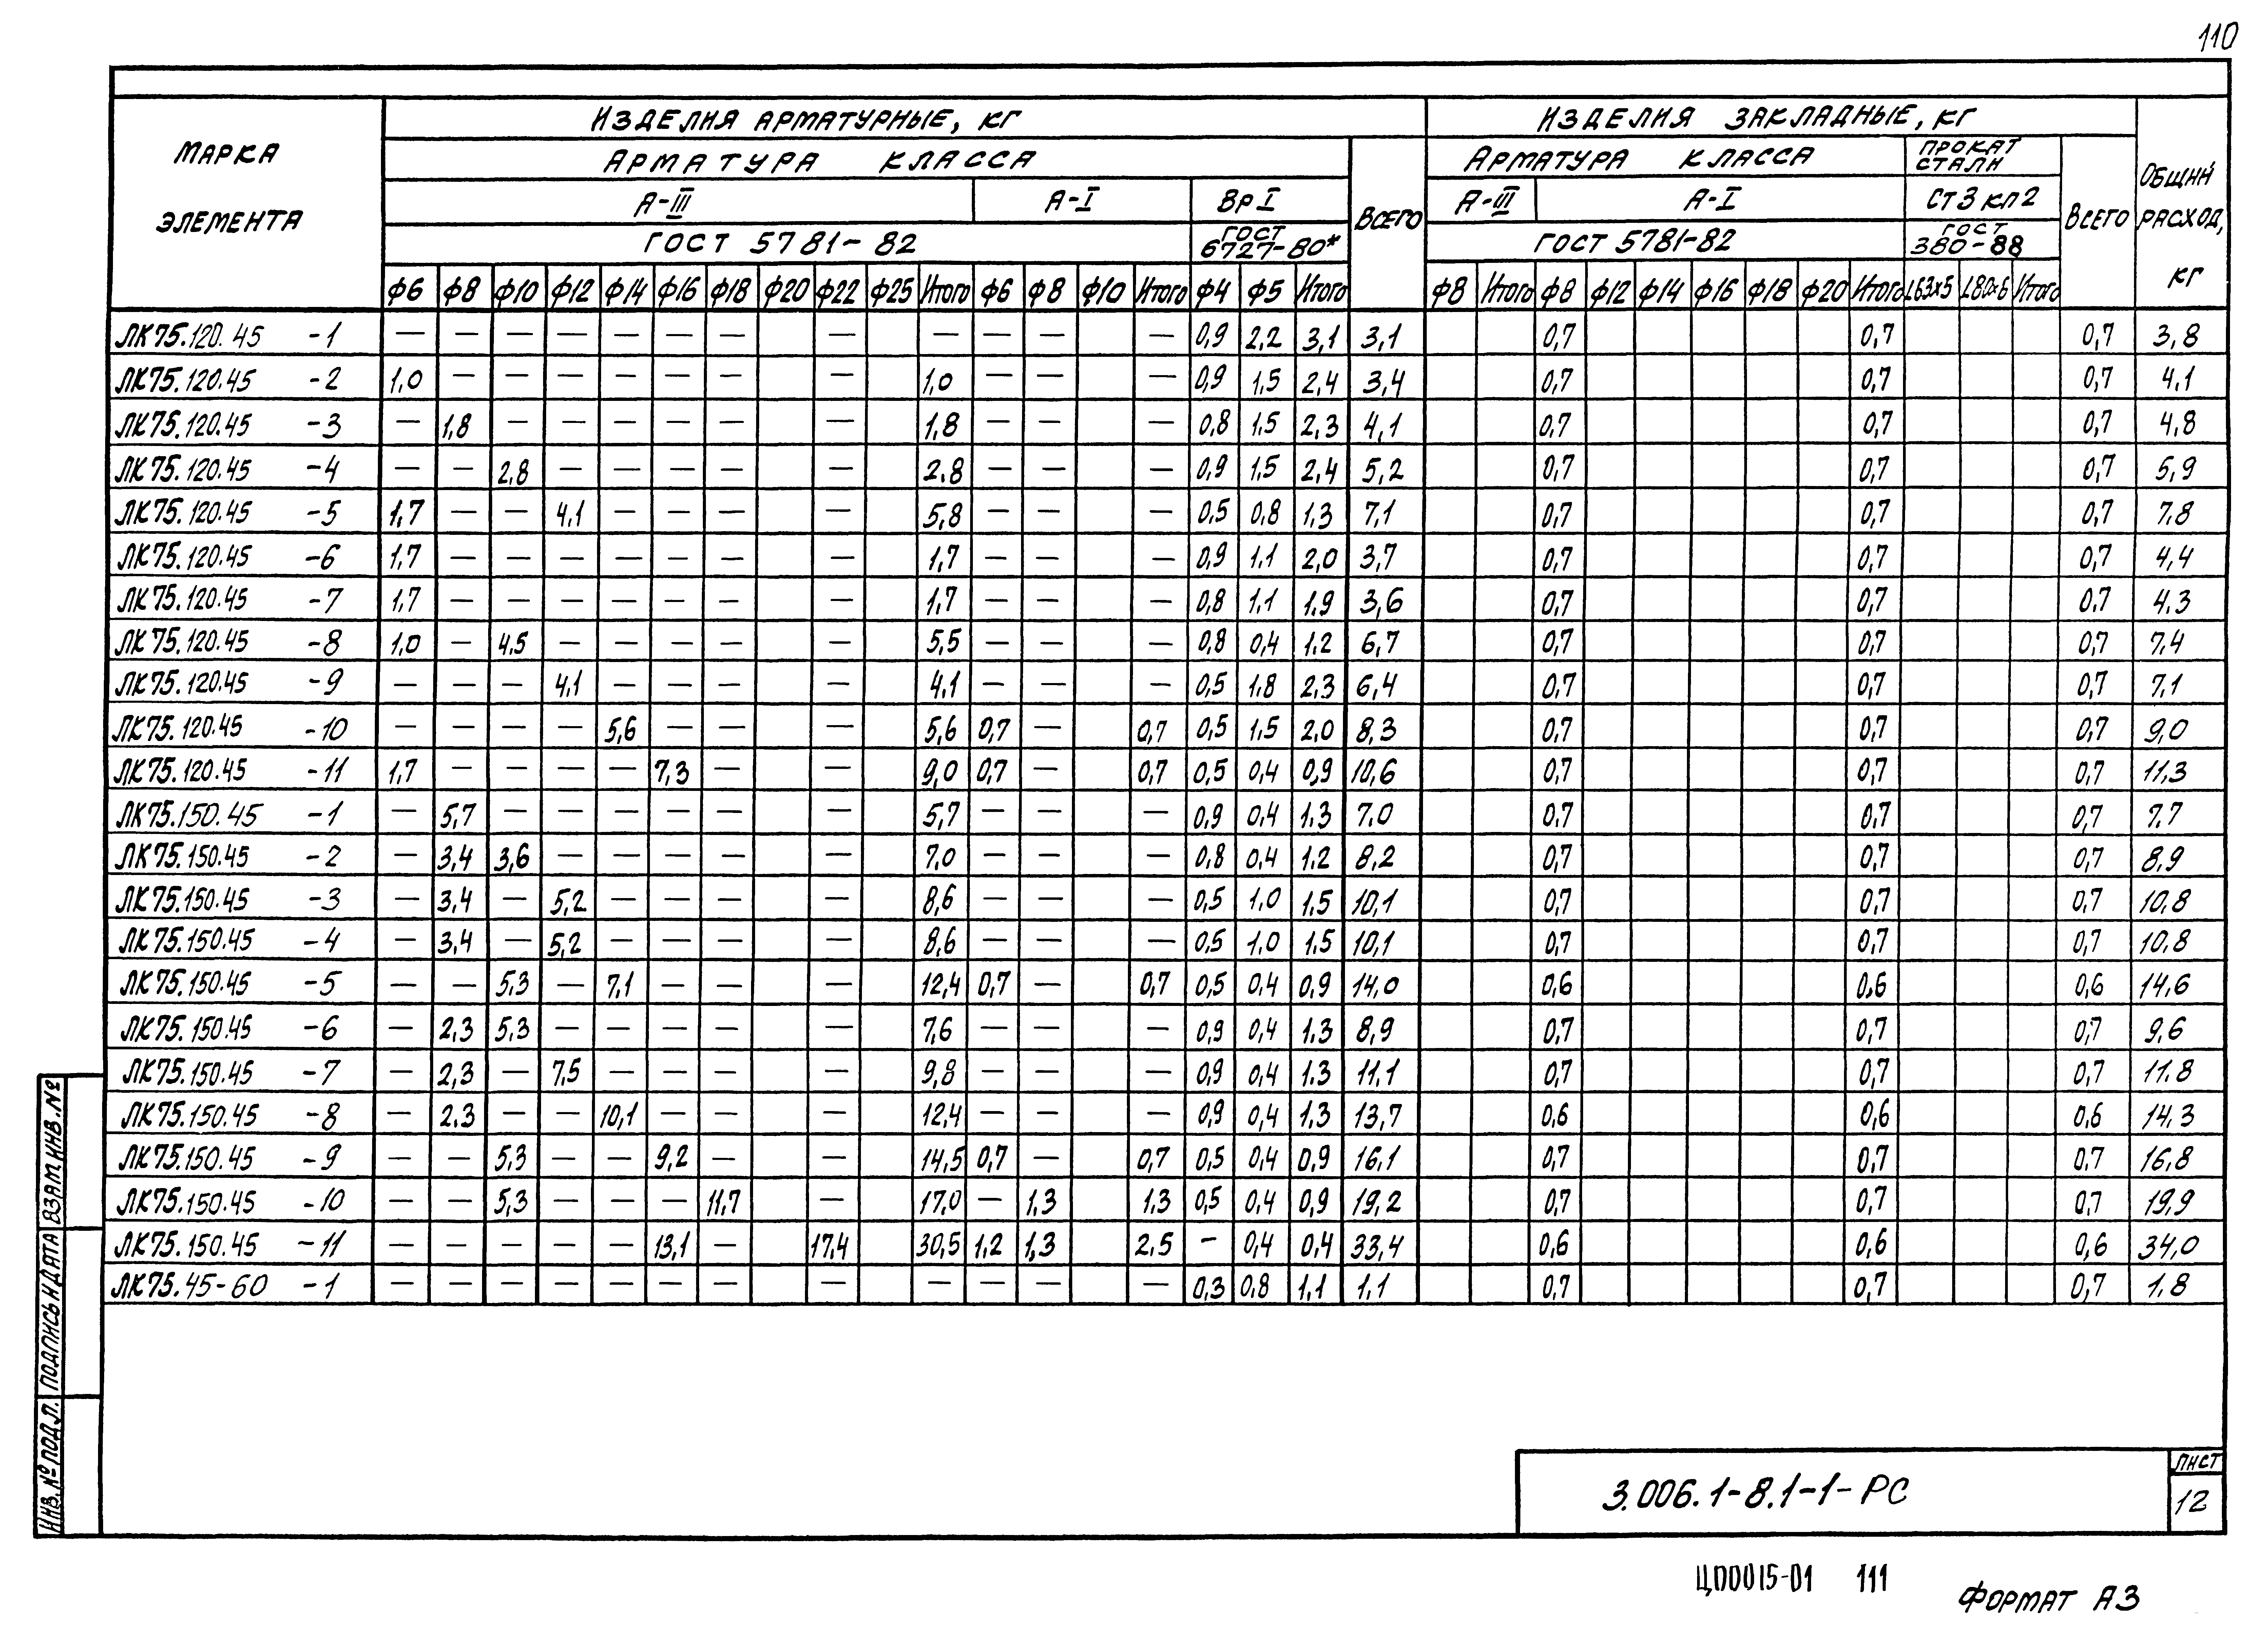 110
МАРКА ЭЛЕМЕНТА
ИЗДЕЛИЯ АРМАТУРНЫЕ, КГ
ИЗДЕЛИЯ ЗАКЛАДНЫЕ, КГ
ОБЩИЙ РАСХОД, КГ
АРМАТУРА КЛАССА
ВСЕГО
АРМАТУРА КЛАССА
ПРОКАТ СТАЛИ
ВСЕГО
А-III А-I ВрI А-III А-I СТ3 кп2
ГОСТ 5781-82 ГОСТ 6727-80* ГОСТ 5781-82 ГОСТ 380-88
Ф6 Ф8 Ф10 Ф12 Ф14 Ф16 Ф18 Ф20 Ф22 Ф25 Итого Ф6 Ф8 Ф10 Итого Ф4 Ф5 Итого Ф8 Итого Ф8 Ф12 Ф14 Ф16 Ф18 Ф20 Итого L63х5 L80х6 Итого
ЛК75.120.45 -1 — — — — — — — — — — — — 0,9 2,2 3,1 3,1 0,7 0,7 0,7 3,8
ЛК75.120.45 -2 1,0 — — — — — — — 1,0 — — — 0,9 1,5 2,4 3,4 0,7 0,7 0,7 4,1
ЛК75.120.45 -3 — 1,8 — — — — — — 1,8 — — — 0,8 1,5 2,3 4,1 0,7 0,7 0,7 4,8
ЛК75.120.45 -4 — — 2,8 — — — — — 2,8 — — — 0,9 1,5 2,4 5,2 0,7 0,7 0,7 5,9
ЛК75.120.45 -5 1,7 — — 4,1 — — — — 5,8 — — — 0,5 0,8 1,3 7,1 0,7 0,7 0,7 7,8
ЛК75.120.45 -6 1,7 — — — — — — — 1,7 — — — 0,9 1,1 2,0 3,7 0,7 0,7 0,7 4,4
ЛК75.120.45 -7 1,7 — — — — — — — 1,7 — — — 0,8 1,1 1,9 3,6 0,7 0,7 0,7 4,3
ЛК75.120.45 -8 1,0 — 4,5 — — — — — 5,5 — — — 0,8 0,4 1,2 6,7 0,7 0,7 0,7 7,4
ЛК75.120.45 -9 — — — 4,1 — — — — 4,1 — — — 0,5 1,8 2,3 6,4 0,7 0,7 0,7 7,1
ЛК75.120.45 -10 — — — — 5,6 — — — 5,6 0,7 — 0,7 0,5 1,5 2,0 8,3 0,7 0,7 0,7 9,0
ЛК75.120.45 -11 1,7 — — — — 7,3 — — 9,0 0,7 — 0,7 0,5 0,4 0,9 10,6 0,7 0,7 0,7 11,3
ЛК75.150.45 -1 — 5,7 — — — — — — 5,7 — — — 0,9 0,4 1,3 7,0 0,7 0,7 0,7 7,7
ЛК75.150.45 -2 — 3,4 3,6 — — — — — 7,0 — — — 0,8 0,4 1,2 8,2 0,7 0,7 0,7 8,9
ЛК75.150.45 -3 — 3,4 — 5,2 — — — — 8,6 — — — 0,5 1,0 1,5 10,1 0,7 0,7 0,7 10,8
ЛК75.150.45 -4 — 3,4 — 5,2 — — — — 8,6 — — — 0,5 1,0 1,5 10,1 0,7 0,7 0,7 10,8
ЛК75.150.45 -5 — — 5,3 — 7,1 — — — 12,4 0,7 — 0,7 0,5 0,4 0,9 14,0 0,6 0,6 0,6 14,6
ЛК75.150.45 -6 — 2,3 5,3 — — — — — 7,6 — — — 0,9 0,4 1,3 8,9 0,7 0,7 0,7 9,6
ЛК75.150.45 -7 — 2,3 — 7,5 — — — — 9,8 — — — 0,9 0,4 1,3 11,1 0,7 0,7 0,7 11,8
ЛК75.150.45 -8 — 2,3 — — 10,1 — — — 12,4 — — — 0,9 0,4 1,3 13,7 0,6 0,6 0,6 14,3
ЛК75.150.45 -9 — — 5,3 — — 9,2 — — 14,5 0,7 — 0,7 0,5 0,4 0,9 16,1 0,7 0,7 0,7 16,8
ЛК75.150.45 -10 — — 5,3 — — — 11,7 — 17,0 — 1,3 1,3 0,5 0,4 0,9 19,2 0,7 0,7 0,7 19,9
ЛК75.150.45 -11 — — — — — 13,1 — 17,4 30,5 1,2 1,3 2,5 - 0,4 0,4 33,4 0,6 0,6 0,6 34,0
ЛК75.45-60 -1 — — — — — — — — — — — — 0,3 0,8 1,1 1,1 0,7 0,7 0,7 1,8
ВЗАМ.ИНВ.№
ПОДПИСЬ И ДАТА
ИНВ.№ПОДЛ.
3.006.1-8.1-1-РС
ЛИСТ
12
ЦП0015-01 111
ФОРМАТ А3